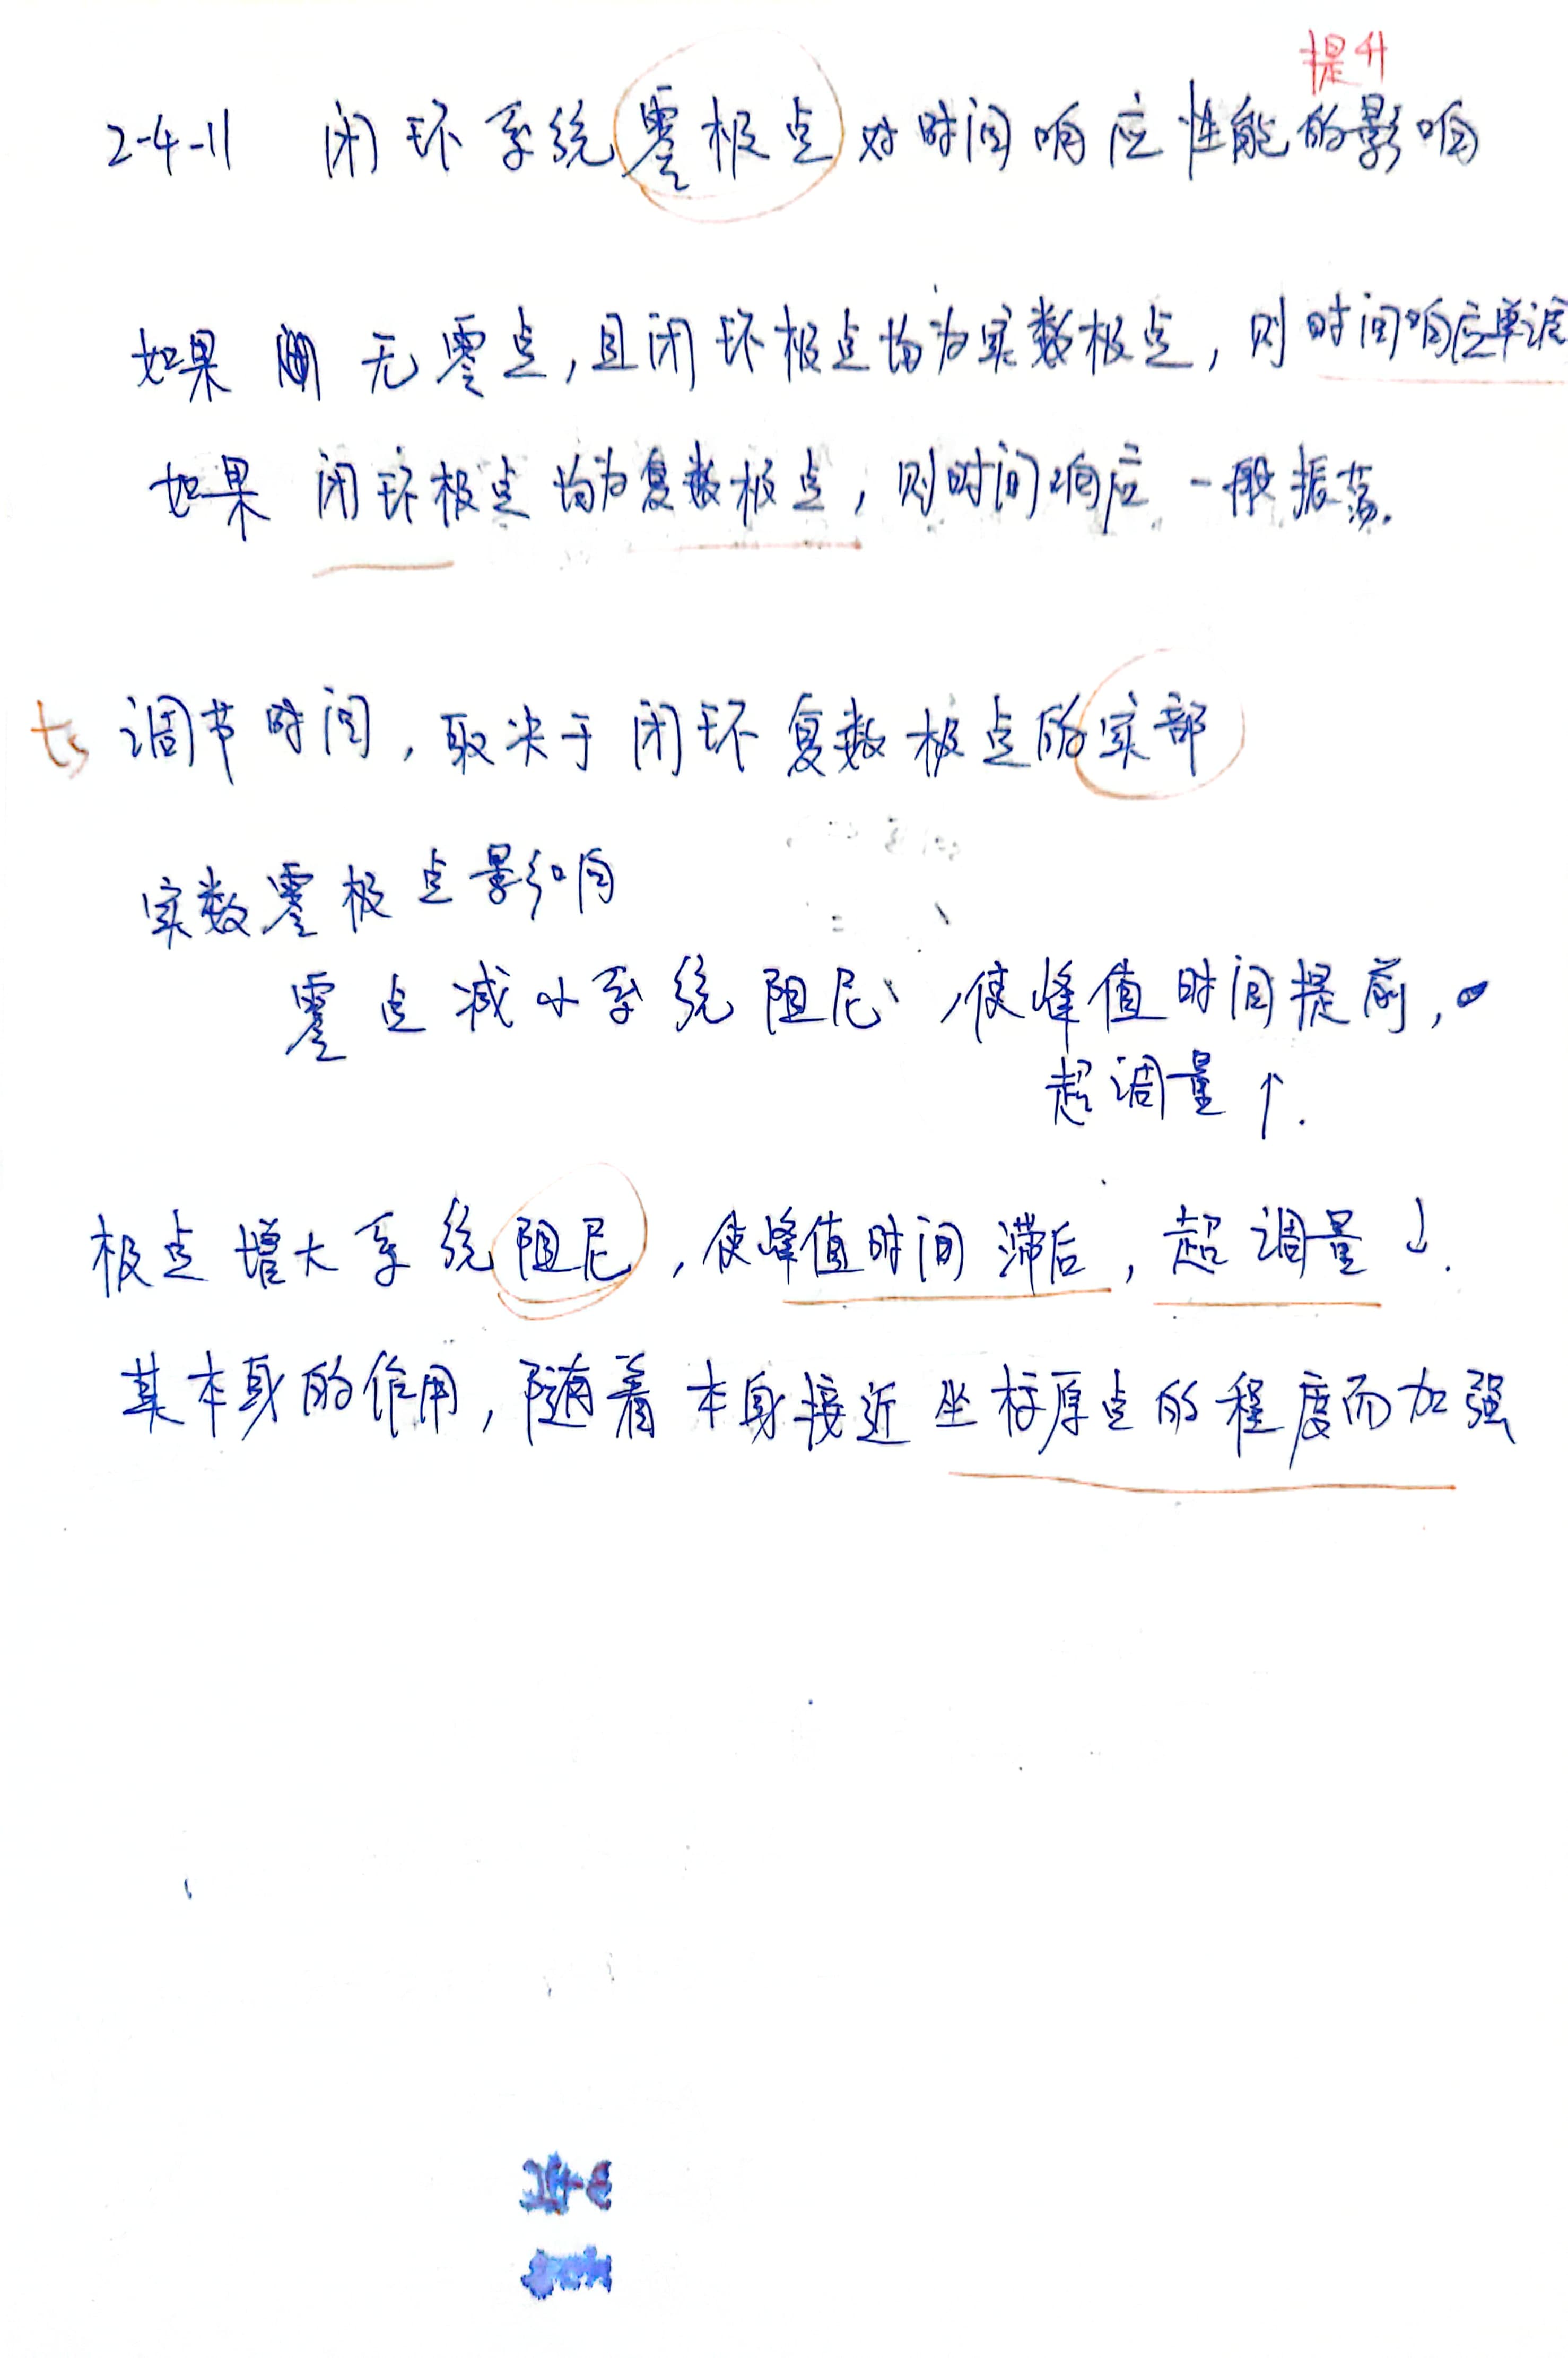 提升
2-4-11 闭环系统零极点对时间响应性能的影响
如果 无零点,且闭环极点均为实数极点,则时间响应单调
如果 闭环极点均为复数极点,则时间响应 一般振荡.
ts 调节时间,取决于闭环复数极点的实部
实数零极点影响
零点减小系统阻尼,使峰值时间提前,
超调量↑.
极点增大系统阻尼,使峰值时间滞后,超调量↓.
其本身的作用,随着本身接近坐标原点的程度而加强